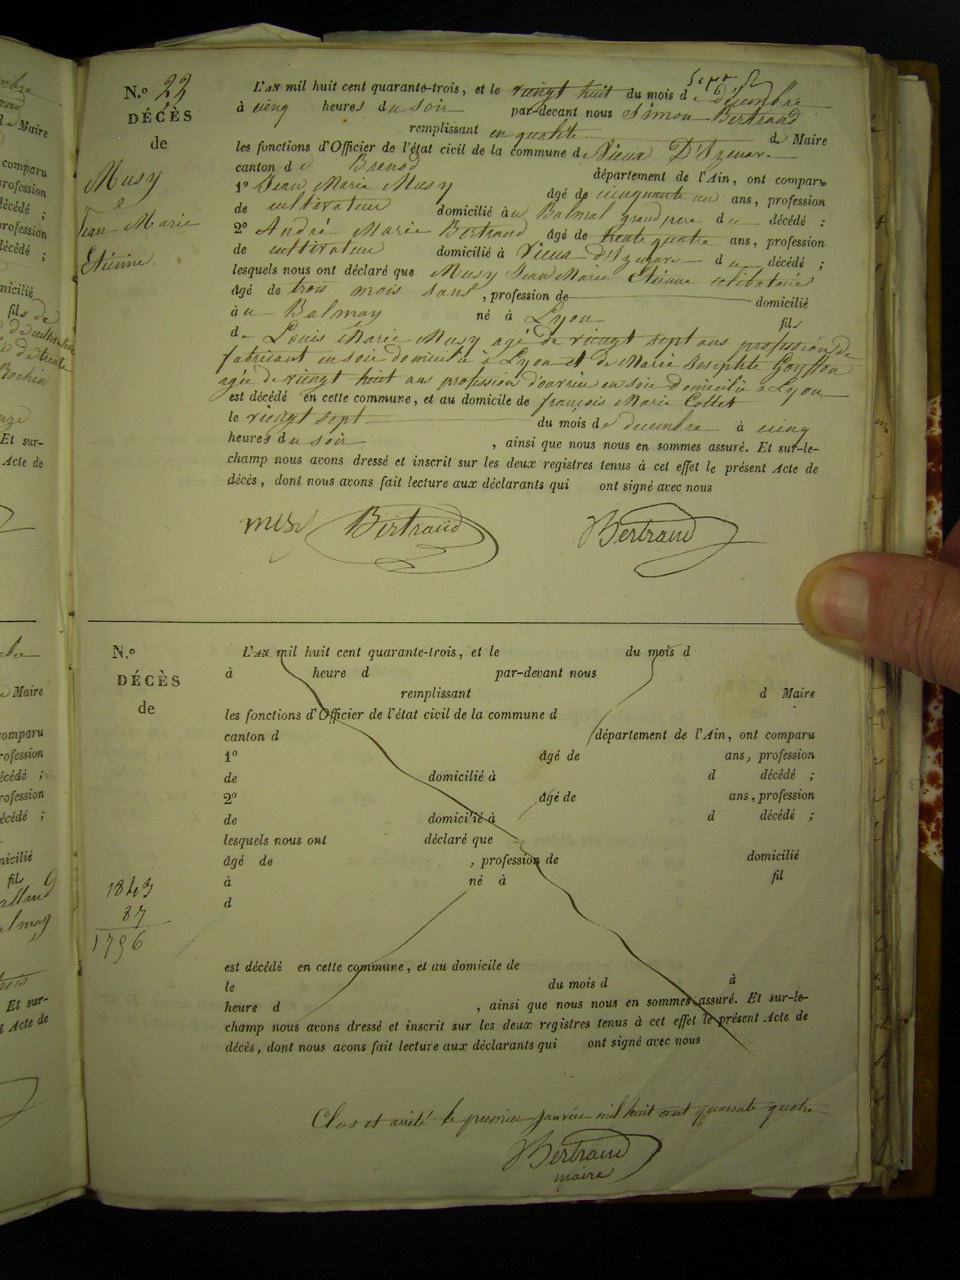 N.º 22
DÉCÈS
de
Musy
Jean Marie
Etienne
L'AN mil huit cent quarante-trois, et le vingt huit du mois de décembre
à cinq heures du soir par-devant nous Simon Bertrand
remplissant en qualité de Maire
les fonctions d'Officier de l'état civil de la commune de Vieux D'Izenave
canton de Brenod département de l'Ain, ont comparu
1º Jean Marie Musy âgé de cinquante un ans, profession
de cultivateur domicilié au Balmay grand pere du décédé ;
2º André Marie Bertrand âgé de trente quatre ans, profession
de cultivateur domicilié à Vieux d'Izenave du décédé ;
lesquels nous ont déclaré que Musy Jean Marie Etienne celibataire
âgé de trois mois sans , profession de domicilié
au Balmay né à Lyon fils
de Louis Marie Musy agé de vingt sept ans profession de
fabricant en soie domicilié à Lyon et de Marie Josephte Goyffon
agée de vingt huit ans profession d'ouvrière en soie domiciliée à Lyon
est décédé en cette commune, et au domicile de françois Marie Collet
le vingt sept du mois de decembre à cinq
heures du soir , ainsi que nous nous en sommes assuré. Et sur-le-
champ nous avons dressé et inscrit sur les deux registres tenus à cet effet le présent Acte de
décès, dont nous avons fait lecture aux déclarants qui ont signé avec nous
Bertrand Bertrand
N.º
DÉCÈS
de
L'AN mil huit cent quarante-trois, et le du mois d
à heure d par-devant nous
remplissant d Maire
les fonctions d'Officier de l'état civil de la commune d
canton d département de l'Ain, ont comparu
1º âgé de ans, profession
de domicilié à d décédé ;
2º âgé de ans, profession
de domicilié à d décédé ;
lesquels nous ont déclaré que
âgé de , profession de domicilié
à né à fil
d
1843
87
1756
est décédé en cette commune, et au domicile de
le du mois d à
heure d , ainsi que nous nous en sommes assuré. Et sur-le-
champ nous avons dressé et inscrit sur les deux registres tenus à cet effet le présent Acte de
décès, dont nous avons fait lecture aux déclarants qui ont signé avec nous
Clos et arrêté le premier Janvier mil huit cent quarante quatre
Bertrand
maire